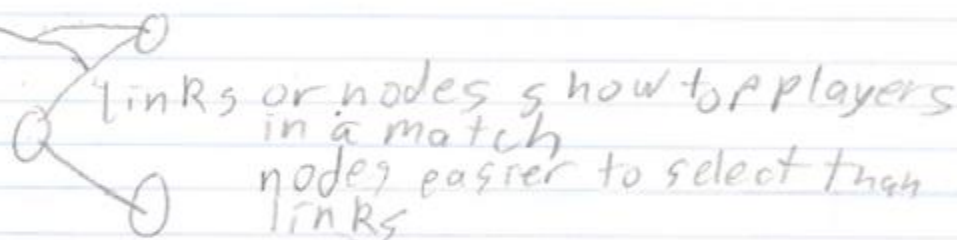 links or nodes show top players
in a match
nodes easier to select than
links